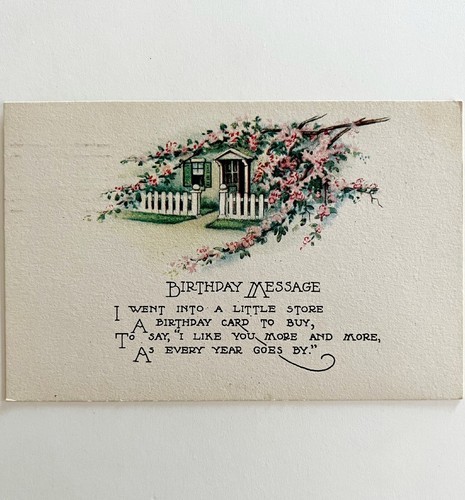 BIRTHDAY MESSAGE
I WENT INTO A LITTLE STORE
A BIRTHDAY CARD TO BUY,
TO SAY, "I LIKE YOU MORE AND MORE,
AS EVERY YEAR GOES BY."